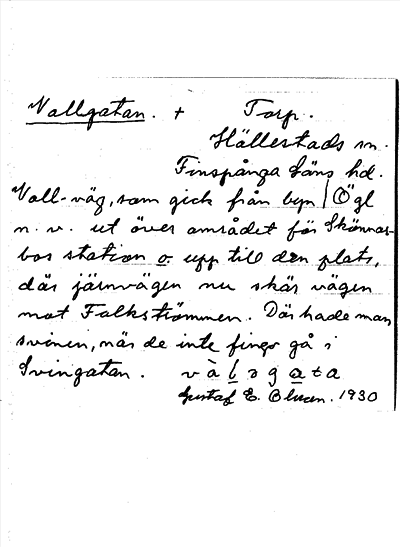 Vallgatan. + Torp.
Hällestads sn.
Finspånga läns hd.
Vall-väg, som gick från byn / Ögl
n. v. ut över området för Skönnar-
bos station o. upp till den plats,
där järnvägen nu skär vägen
mot Falkströmmen. Där hade man
svinen, när de inte fingo gå i
Svingatan. v à l ə g a t a
Gustaf E. 1930